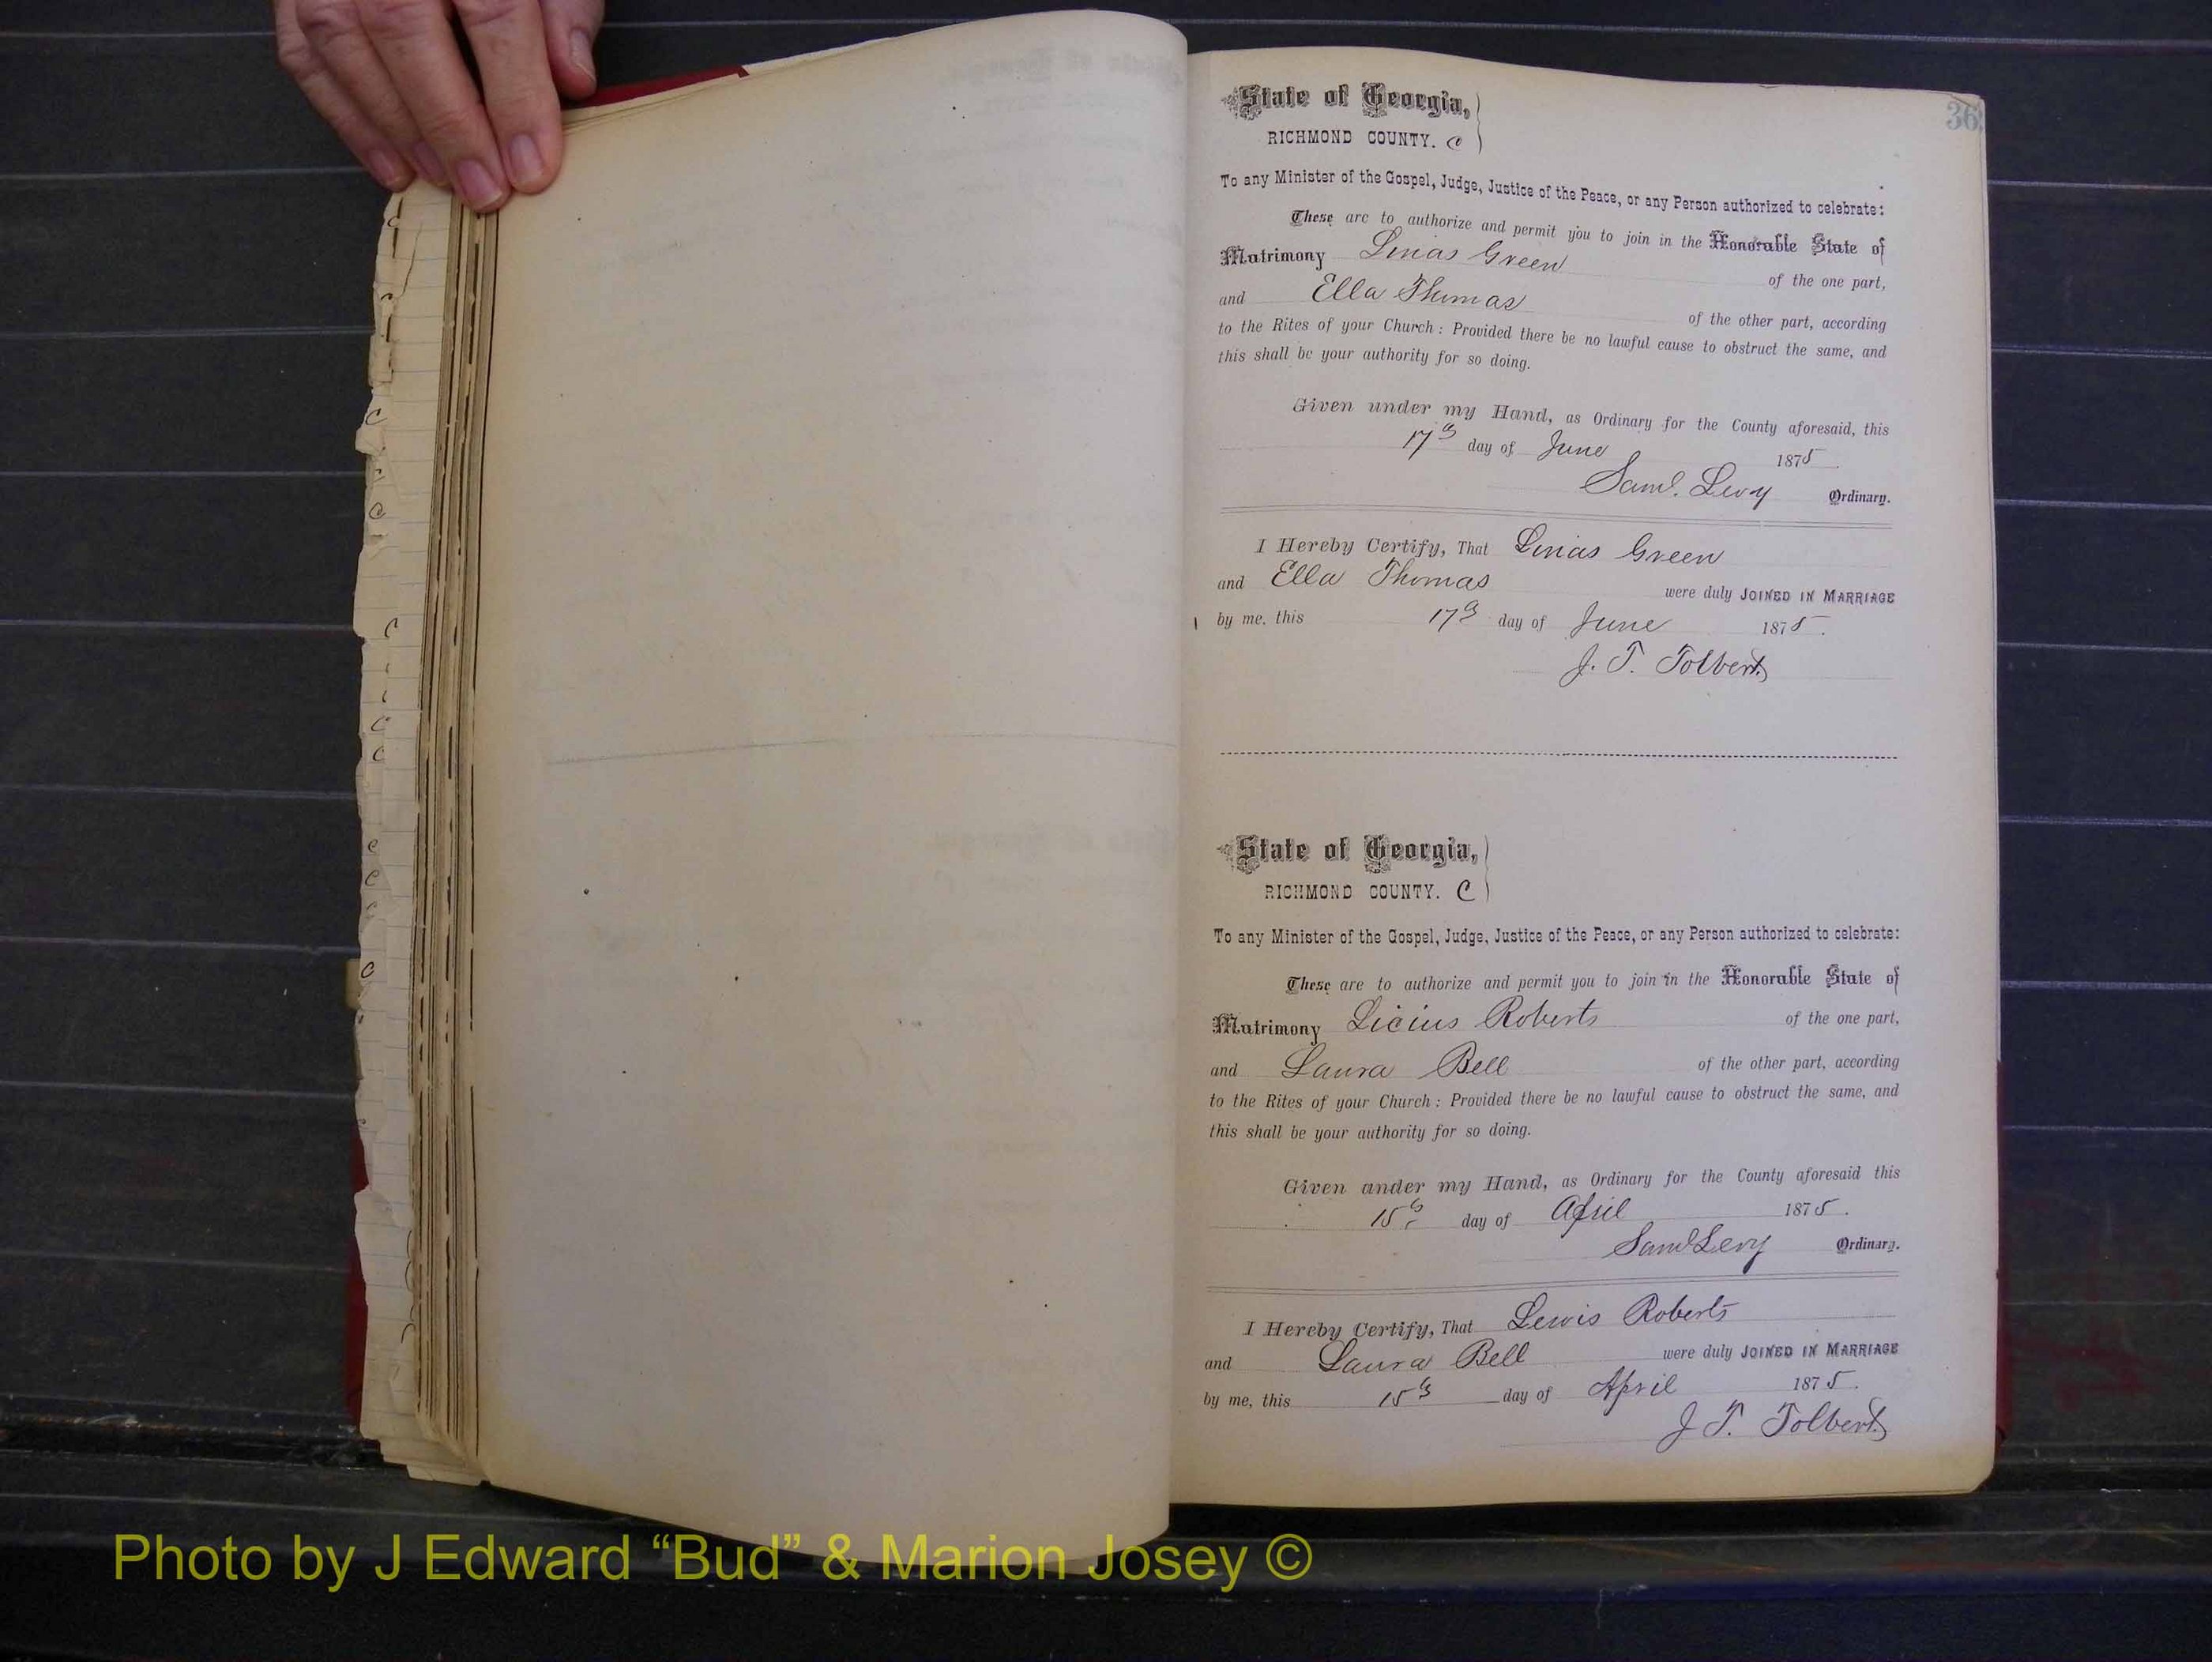 36
State of Georgia,
RICHMOND COUNTY. C
To any Minister of the Gospel, Judge, Justice of the Peace, or any Person authorized to celebrate:
These are to authorize and permit you to join in the Honorable State of
Matrimony Linias Green of the one part,
and Ella Thomas of the other part, according
to the Rites of your Church: Provided there be no lawful cause to obstruct the same, and
this shall be your authority for so doing.
Given under my Hand, as Ordinary for the County aforesaid, this
17th day of June 1875
Saml. Levy Ordinary.
I Hereby Certify, That Linias Green
and Ella Thomas were duly JOINED IN MARRIAGE
by me, this 17th day of June 1875.
J. T. Tolbert
State of Georgia,
RICHMOND COUNTY. C
To any Minister of the Gospel, Judge, Justice of the Peace, or any Person authorized to celebrate:
These are to authorize and permit you to join in the Honorable State of
Matrimony Licius Roberts of the one part,
and Laura Bell of the other part, according
to the Rites of your Church: Provided there be no lawful cause to obstruct the same, and
this shall be your authority for so doing.
Given under my Hand, as Ordinary for the County aforesaid this
15th day of April 1875.
Saml Levy Ordinary.
I Hereby Certify, That Lewis Roberts
and Laura Bell were duly JOINED IN MARRIAGE
by me, this 15th day of April 1875.
J T. Tolbert
Photo by J Edward “Bud” & Marion Josey ©